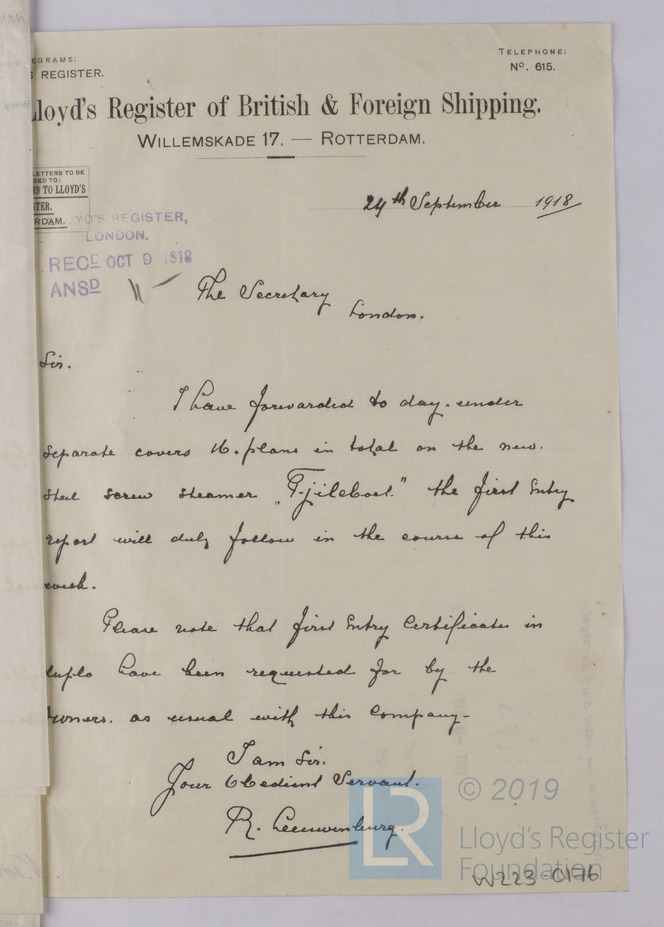 EGRAMS:
S REGISTER.
TELEPHONE:
No. 615.
Lloyd's Register of British & Foreign Shipping.
WILLEMSKADE 17. — ROTTERDAM.
LETTERS TO BE
SED TO:
RS TO LLOYD'S
STER.
RDAM.
24th September 1918
YD'S REGISTER,
LONDON.
RECD OCT 9 1918
ANSD
The Secretary
London.
Sir.
I have forwarded to day. under
separate covers 16. plans in total on the new.
steel screw steamer „Tjileboet." the first Entry
report will duly follow in the course of this
week.
Please note that first Entry Certificates in
duplo have been requested for by the
Owners. as usual with this Company-
I am Sir.
Your Obedient Servant.
R. Leeuwenburg.
LR
© 2019
Lloyd's Register
Foundation
W223-0176